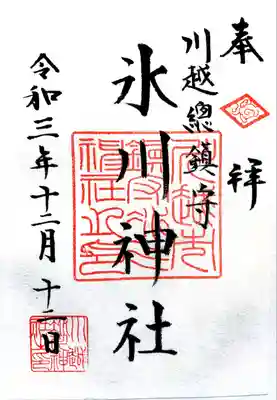 奉拝
川越總鎮守
氷川神社
令和三年十二月十二日